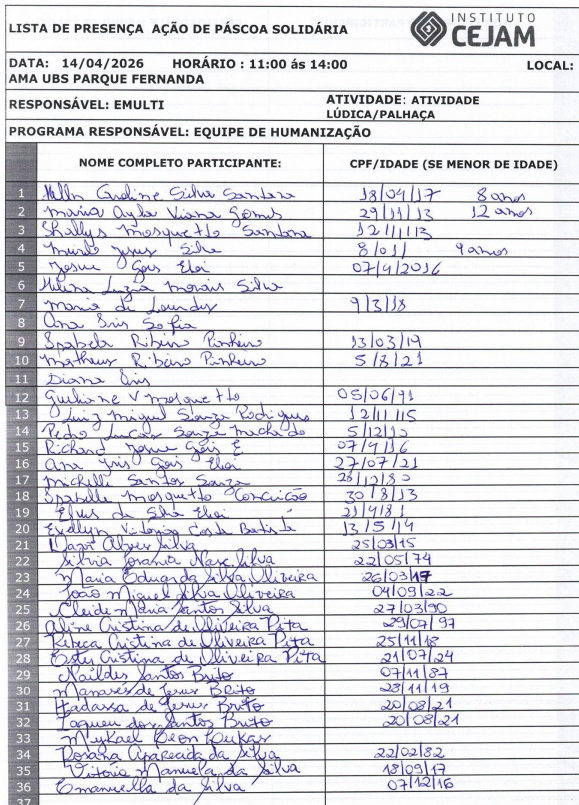 LISTA DE PRESENÇA AÇÃO DE PÁSCOA SOLIDÁRIA
INSTITUTO
CEJAM
DATA: 14/04/2026 HORÁRIO : 11:00 ás 14:00 LOCAL:
AMA UBS PARQUE FERNANDA
RESPONSÁVEL: EMULTI ATIVIDADE: ATIVIDADE
LÚDICA/PALHAÇA
PROGRAMA RESPONSÁVEL: EQUIPE DE HUMANIZAÇÃO
NOME COMPLETO PARTICIPANTE: CPF/IDADE (SE MENOR DE IDADE)
1 Caroline Silva Santana 18/04/17 8 anos
2 Maria Ayla Viana Gomes 29/11/13 12 anos
3 Shallys Mosquetto Santana 12/11/13
4 Murilo Jesus Silva 9 anos
5 Josue Gois Eloi 07/4/2016
6 Helena Luzia Morais Silva
7 Maria de Lourdes 9/3/18
8 Ana Iris Sofia
9 Isabela Ribeiro Pinheiro 13/03/19
10 Matheus Ribeiro Pinheiro 5/8/21
11 Diana Iris
12 Guiliane V Mosquetto 05/06/91
13 Luiz Miguel Souza Rodrigues 12/11/15
14 Pedro Lucas Souza Machado 5/12/12
15 Richard Josue Gois E 07/4/16
16 Ana Iris Gois Eloi 27/07/21
17 Michelli Santos Souza
18 Isabelle Mosquetto Conceicão 30/8/13
19 Elvis da Silva Eloi 21/4/81
20 Evellyn Victoria Costa Batista 13/5/14
21 Alves Silva 25/03/15
22 Silvia Josania Nasc. Silva 22/05/74
23 Maria Eduarda Silva Oliveira 26/03/17
24 João Miguel Silva Oliveira 04/09/22
25 Cleide Maria Santos Silva 27/03/90
26 Aline Cristina de Oliveira Pita 29/07/97
27 Rebeca Cristina de Oliveira Pita 25/11/18
28 Ester Cristina de Oliveira Pita 21/07/24
29 Naildes Santos Brito 07/11/87
30 Manassés de Jesus Brito 28/11/19
31 Hadassa de Jesus Brito 20/08/21
32 dos Santos Brito 20/08/21
33 Mykael Deon
34 Rosana Aparecida da Silva 22/02/82
35 Vitória Manuela da Silva 18/09/17
36 Emanuella da Silva 07/12/16
37